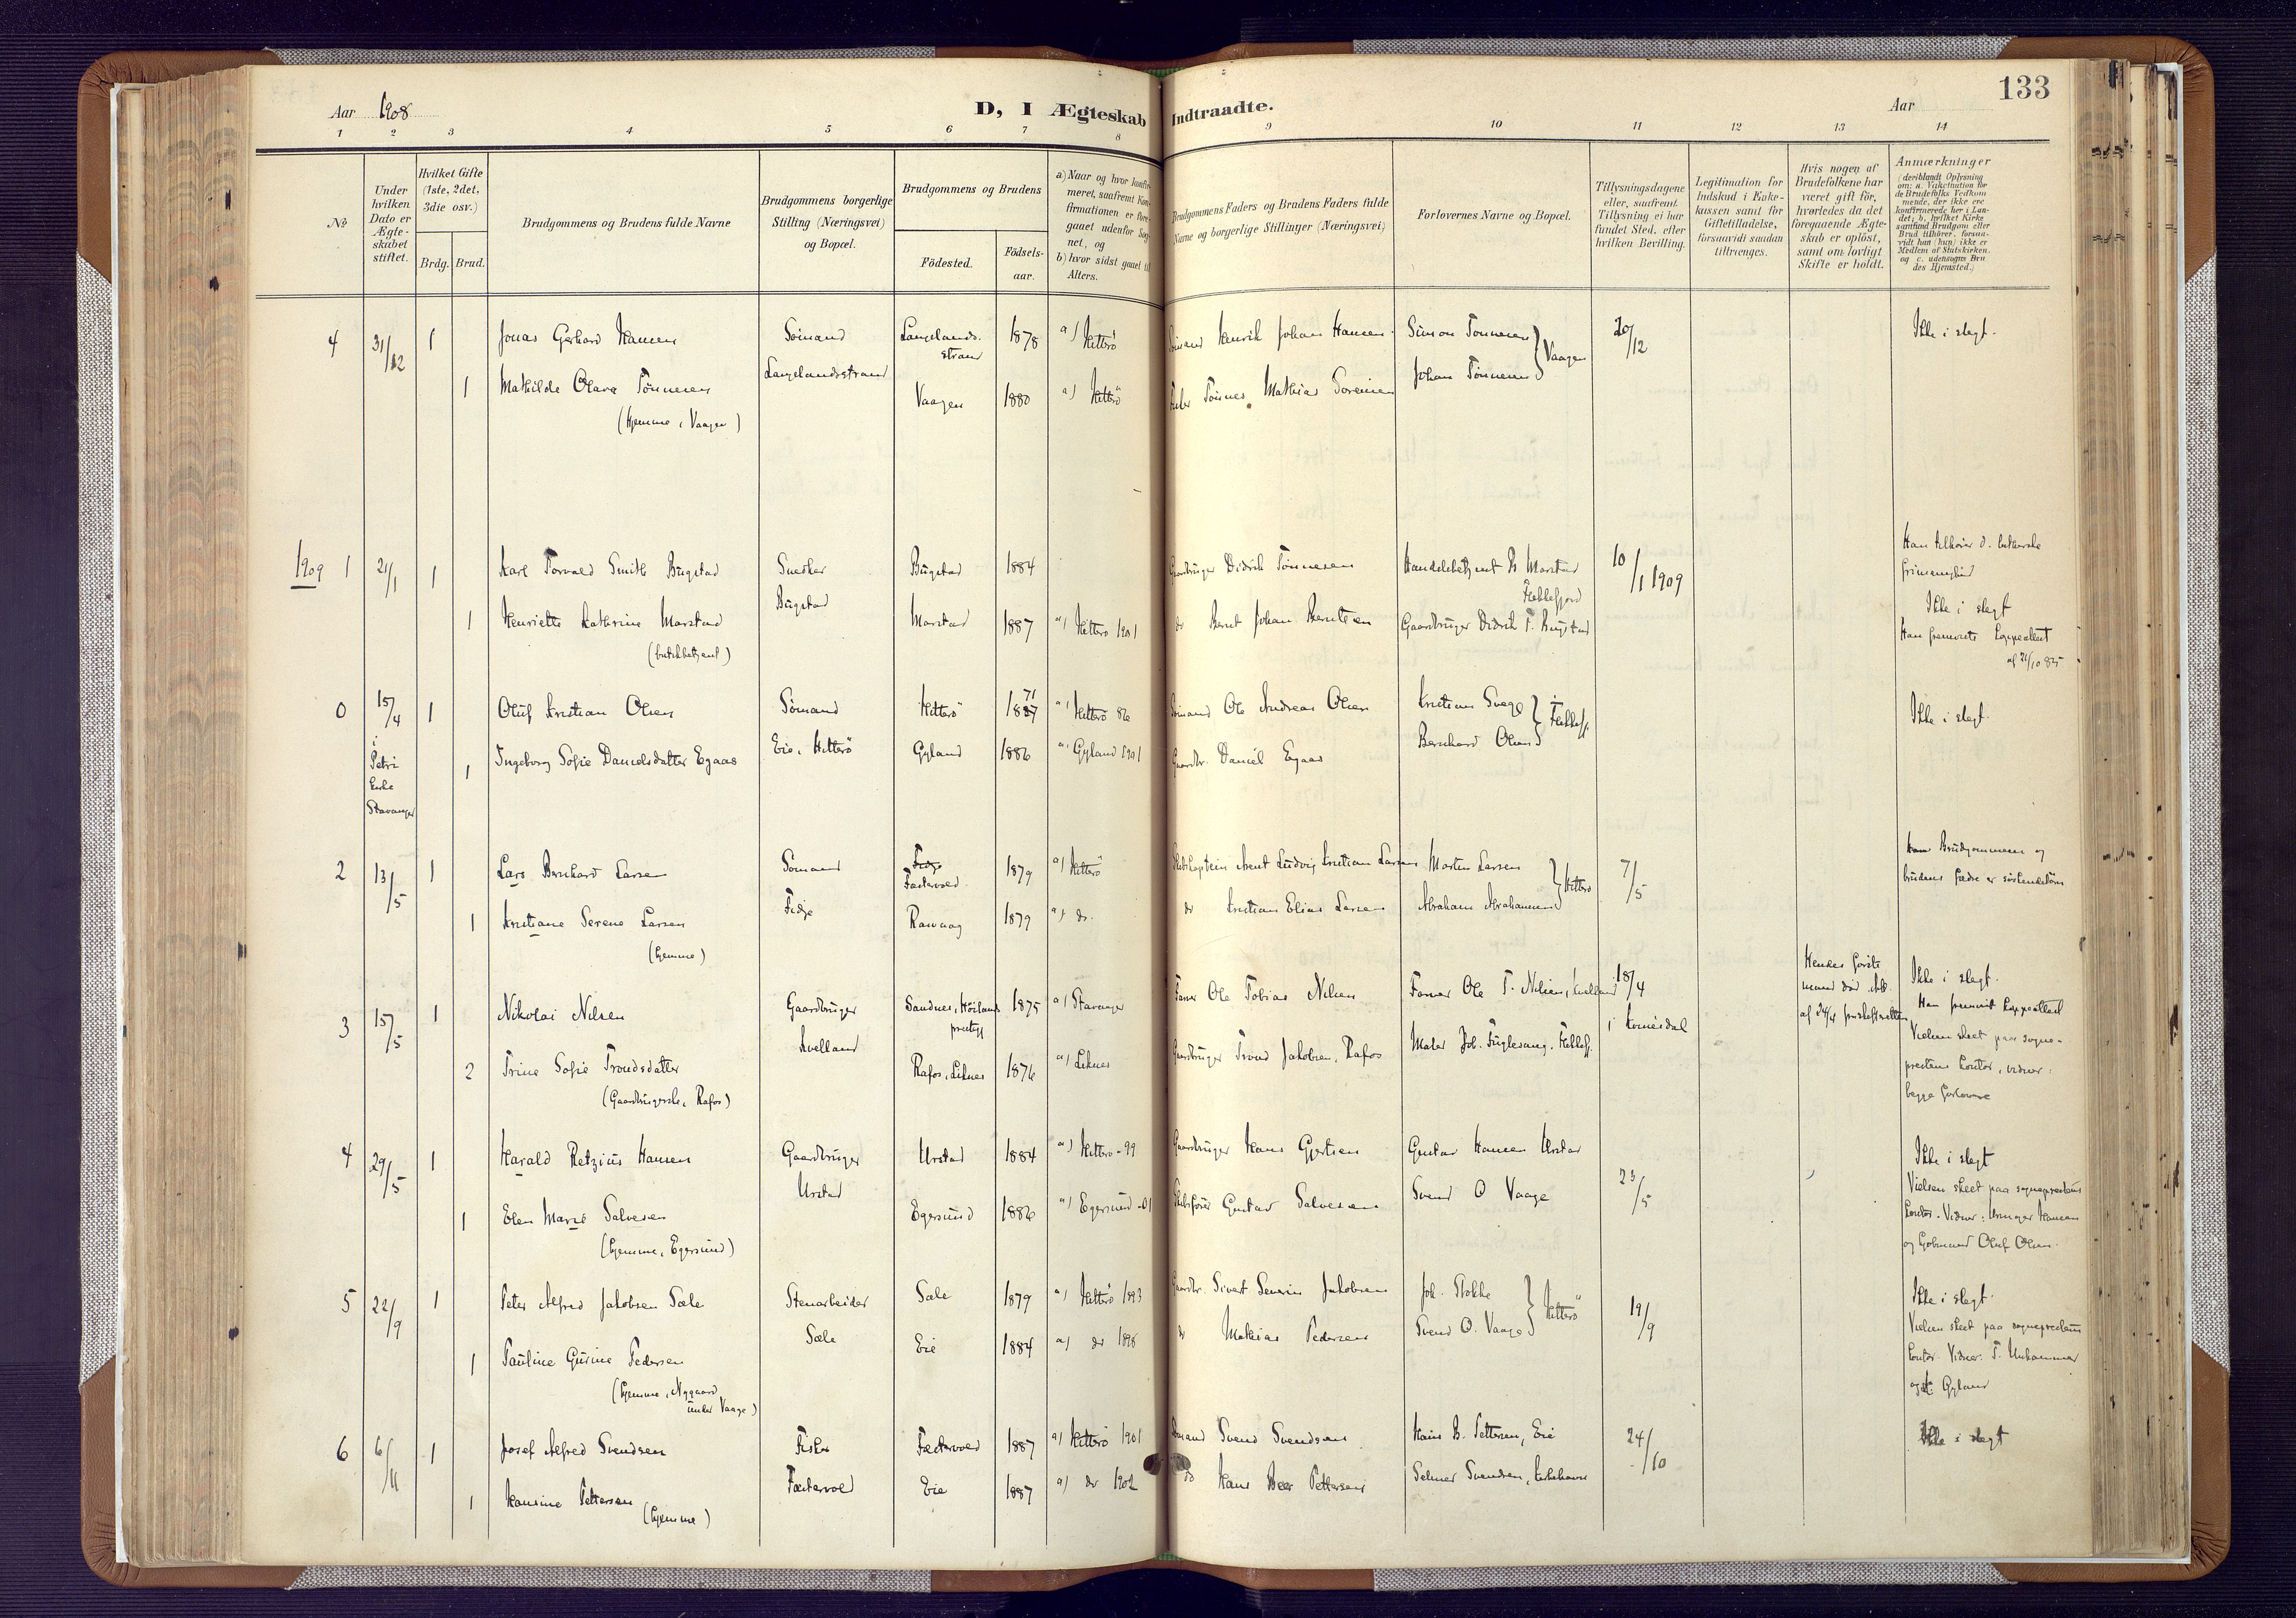 133
Aar 1908
D, I Ægteskab Indtraadte.
Aar
1 2 3 4 5 6 7 8 9 10 11 12 13 14
No
Under hvilken Dato er Ægte-skabet stiftet.
Hvilket Gifte (1ste, 2det, 3die osv.)
Brdg. Brud.
Brudgommens og Brudens fulde Navne
Brudgommens borgerlige Stilling (Næringsvei) og Bopæl.
Brudgommens og Brudens
Födested.
Födsels-aar.
a) Naar og hvor konfir-meret, saafremt Kon-firmationen er fore-gaaet udenfor Sog-net, og
b) hvor sidst gaaet til Alters.
Brudgommens Faders og Brudens Faders fulde Navne og borgerlige Stillinger (Næringsvei)
Forlovernes Navne og Bopæl.
Tillysningsdagene eller, saafremt Tillysning ei har fundet Sted, efter hvilken Bevilling.
Legitimation for Indskud i Enke-kassen samt for Giftetilladelse, forsaavidt saadan tiltrænges.
Hvis nogen af Brudefolkene har været gift för, hvorledes da det foregaaende Ægte-skab er oplöst, samt om lovligt Skifte er holdt.
Anmærkninger
(deriblandt Oplysning om: a. Vaksination for de Brudefolks Vedkom mende, der ikke ere konfirmerede her i Lan-det; b. hvilket Kirke samfund Brudgom eller Brud tilhörer, forsaa-vidt han (hun) ikke er Medlem af Statskirken, og c. udensogns Bru des Hjemsted.)
4 31/12 1 Jonas Gerhard Hansen Sömand Langelands-strand 1878 a) Hitterö Sömand Henrik Johan Hansen Simon Tönnesen 20/12 Ikke i slegt.
Langelandsstrand
1 Mathilde Olava Tönnesen Vaagen 1880 a) Hitterö Tönnes Mathias Sörensen Johan Tönnesen } Vaagen
(Hjemme, Vaagen)
1909 1 21/1 1 Karl Torvald Smith Bugstad Snedker Bugstad 1884 Gaardbruger Didrik Tönnesen Handelsbetjent B. Marstad Flekkefjord 10/1 1909 Han tilhører d. lutherske frimenighed
Bugstad
1 Henriette Kathrine Marstad Marstad 1887 a) Hitterö 1901 do Bernt Johan Berntsen Gaardbruger Didrik T. Bugstad Ikke i slegt
(butikbetjent) Han fremviste Koppeattest
0 15/4 1 Oluf Kristian Olsen Sömand Hitterö 1871 a) Hitterö 86 Sömand Ole Andreas Olsen Kristian Svege } i Flekkefj. Ikke i slegt.
i Petri Kirke Stavanger 1 Ingeborg Sofie Danielsdatter Egaas Eie, Hitterö Gyland 1886 a) Gyland 1901 Gaardbr. Daniel Egaas Bernhard Olsen
2 13/5 1 Lars Bernhard Larsen Sömand Fidje Fædevold 1879 a) Hitterö Skibskaptein Arent Ludvig Kristian Larsen Morten Larsen } Hitterö 7/5 Brudgommens og brudens fædre er söskendebörn
Fidje
1 Kristiane Serene Larsen Rasvaag 1879 a) do. do Kristian Elias Larsen Abraham Abrahamsen
(hjemme)
3 15/5 1 Nikolai Nilsen Gaardbruger Sandnes, Höiland prestgj 1875 a) Stavanger Farver Ole Tobias Nilsen Farver Ole T. Nilsen, Kvelland 18/4 i Kvinesdal Hendes förste mand död Ikke i slegt.
Kvelland Han fremviste Koppeattest
2 Trine Sofie Trondsdatter Rafos, Liknes 1876 a) Liknes Gaardbruger Trond Jakobsen, Rafos Maler Joh. Fuglesang, Flekkefj. Vielsen skeet paa sogne-
(Gaardbrugerske, Rafos) prestens kontor, vidner:
begge forlovere
4 29/5 1 Harald Retzius Hansen Gaardbruger Urstad 1884 a) Hitterö -99 Gaardbruger Hans Gjertsen Gustav Hansen Urstad 23/5 Ikke i slegt
Urstad
1 Elen Marie Salvesen Egersund 1886 a) Egersund -01 Skibsförer Gustav Salvesen Svend O Vaage Vielsen skeet paa sogneprestens
(hjemme, Egersund) kontor. Vidner: Urmager Hansen
og Gjelmund Oluf Olsen.
5 22/9 1 Peter Alfred Jakobsen Sæle Stenarbeider Sæle 1879 a) Hitterö 1893 Gaardbr. Sivert Severin Jakobsen Joh. Stokke } Hitterö 19/9 Ikke i slegt.
Sæle
1 Pauline Gurine Pedersen Eie 1884 a) do 1898 do Mathias Pedersen Svend O. Vaage Vielsen skeet paa sogneprestens
(hjemme, Nygaard under Vaage) kontor. Vidner: T. Unhammer
Gyland
6 6/11 1 Josef Alfred Svendsen Fisker Fædevold 1887 a) Hitterö 1901 Sömand Svend Svendsen Hans B. Pettersen, Eie 24/10 Ikke i slegt
Fædevold
1 Hansine Pettersen Eie 1887 a) do 1902 do Hans Beer Pettersen Selmer Svendsen, Kirkehavn
(hjemme)